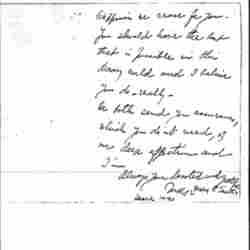 happiness we crave for you.
You should have the best
that is possible in this
dreary world and I believe
you do — really —
We both send you assurance,
which you do not need, of
our deep affection and
I'm
Always your devoted